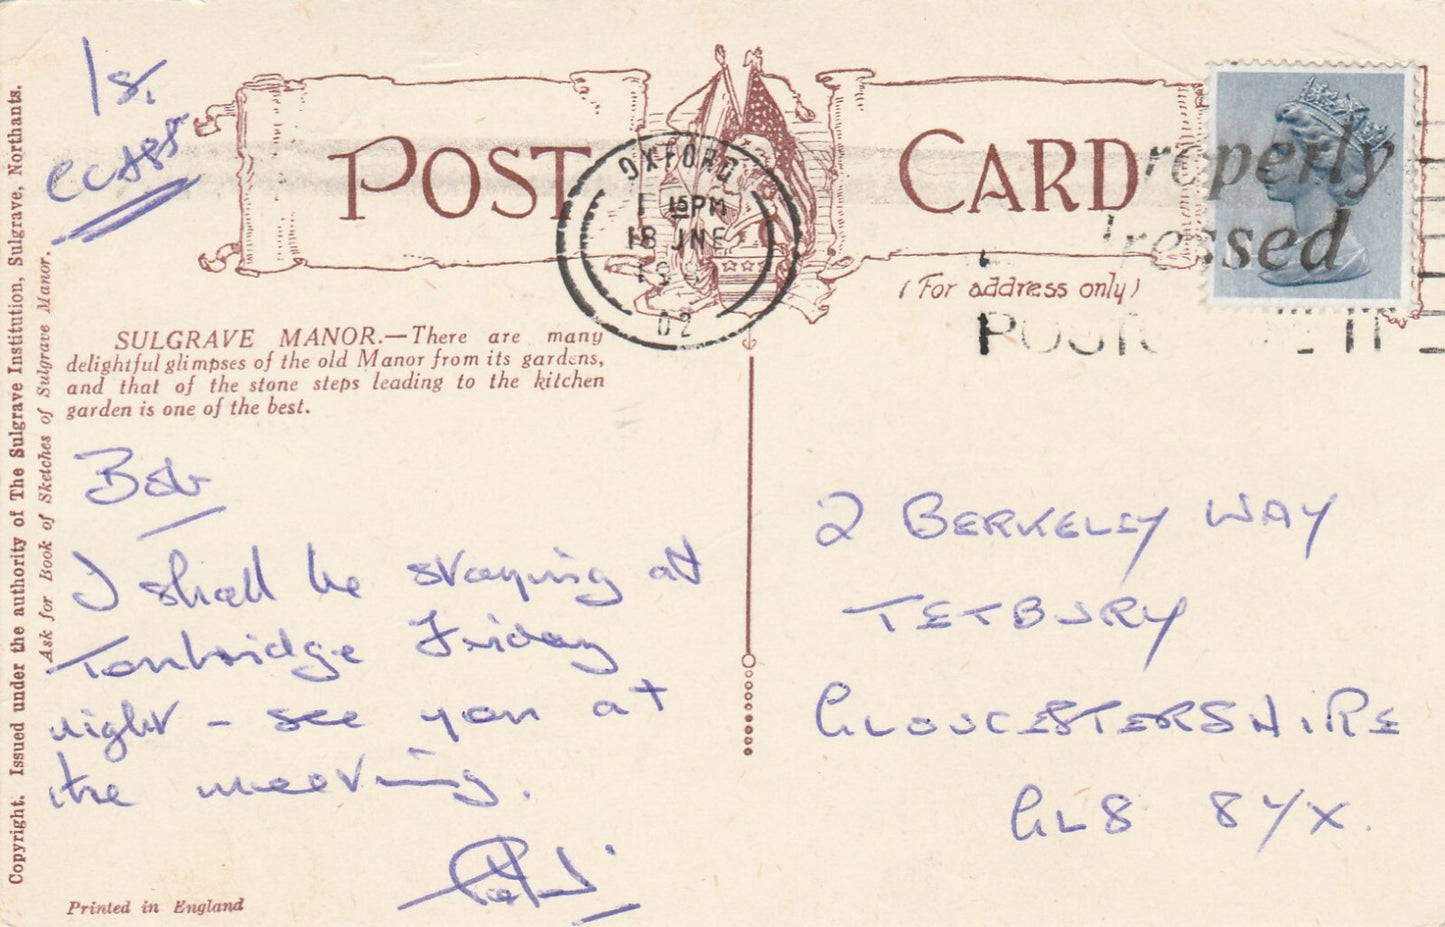 POST CARD
(For address only)
OXFORD
15PM
18 JNE
02
roperly
ressed
Copyright. Issued under the authority of The Sulgrave Institution, Sulgrave, Northants.
Ask for Book of Sketches of Sulgrave Manor.
SULGRAVE MANOR.—There are many
delightful glimpses of the old Manor from its gardens,
and that of the stone steps leading to the kitchen
garden is one of the best.
Bob
I shall be staying at
Tonbridge Friday
night - see you at
the meeting.
Printed in England
2 BERKELEY WAY
TETBURY
GLOUCESTERSHIRE
GL8 8YX.